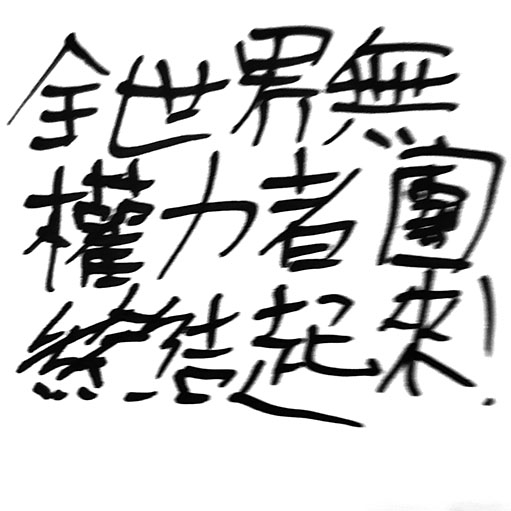 全世界無
權力者團
終結起來!